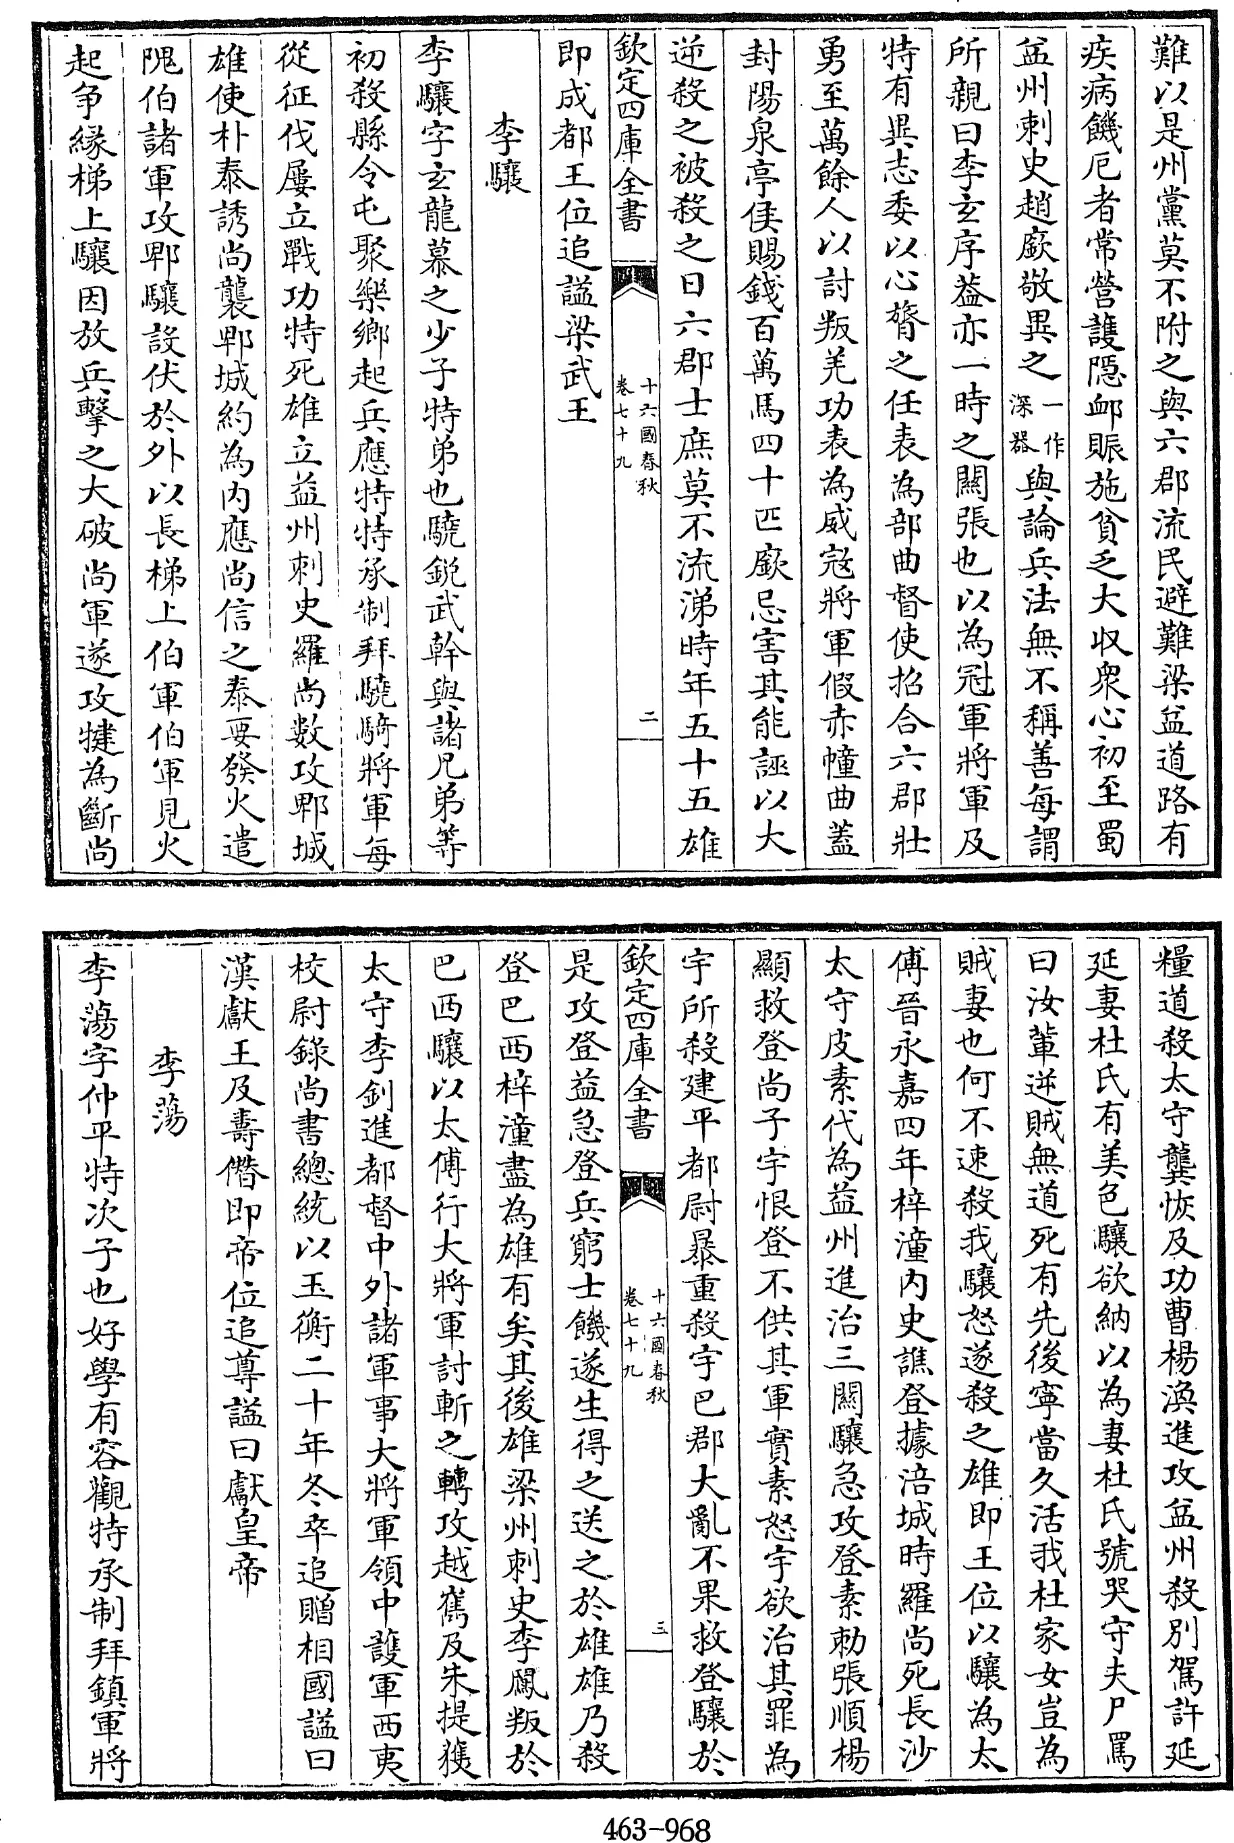 難以是州黨莫不附之與六郡流民避難梁益道路有
疾病饑厄者常營護隱卹賑施貧乏大收衆心初至蜀
益州刺史趙廞敬異之一作深器與論兵法無不稱善每謂
所親曰李玄序葢亦一時之關張也以為冠軍將軍及
特有異志委以心膂之任表為部曲督使招合六郡壯
勇至萬餘人以討叛羌功表為威寇將軍假赤幢曲蓋
封陽泉亭侯賜錢百萬馬四十匹廞忌害其能誣以大
逆殺之被殺之日六郡士庶莫不流涕時年五十五雄
欽定四庫全書
十六國春秋
卷七十九
二
即成都王位追謚梁武王
李驤
李驤字玄龍慕之少子特弟也驍銳武幹與諸兄弟等
初殺縣令屯聚樂鄉起兵應特特承制拜驍騎將軍每
從征伐屢立戰功特死雄立益州刺史羅尚數攻郫城
雄使朴泰誘尚襲郫城約為内應尚信之泰要發火遣
隗伯諸軍攻郫驤設伏於外以長梯上伯軍伯軍見火
起争緣梯上驤因放兵擊之大破尚軍遂攻犍為斷尚
糧道殺太守龔恢及功曹楊渙進攻益州殺別駕許延
延妻杜氏有美色驤欲納以為妻杜氏號哭守夫尸罵
曰汝輩逆賊無道死有先後寧當久活我杜家女豈為
賊妻也何不速殺我驤怒遂殺之雄即王位以驤為太
傅晉永嘉四年梓潼内史譙登據涪城時羅尚死長沙
太守皮素代為益州進治三關驤急攻登素勑張順楊
顯救登尚子宇恨登不供其軍實素怒宇欲治其罪為
宇所殺建平都尉暴重殺宇巴郡大亂不果救登驤於
欽定四庫全書
十六國春秋
卷七十九
三
是攻登益急登兵窮士饑遂生得之送之於雄雄乃殺
登巴西梓潼盡為雄有矣其後雄梁州刺史李鳳叛於
巴西驤以太傅行大將軍討斬之轉攻越巂及朱提獲
太守李釗進都督中外諸軍事大將軍領中護軍西夷
校尉錄尚書總統以玉衡二十年冬卒追贈相國謚曰
漢獻王及壽僭即帝位追尊謚曰獻皇帝
李蕩
李蕩字仲平特次子也好學有容觀特承制拜鎮軍將
463-968